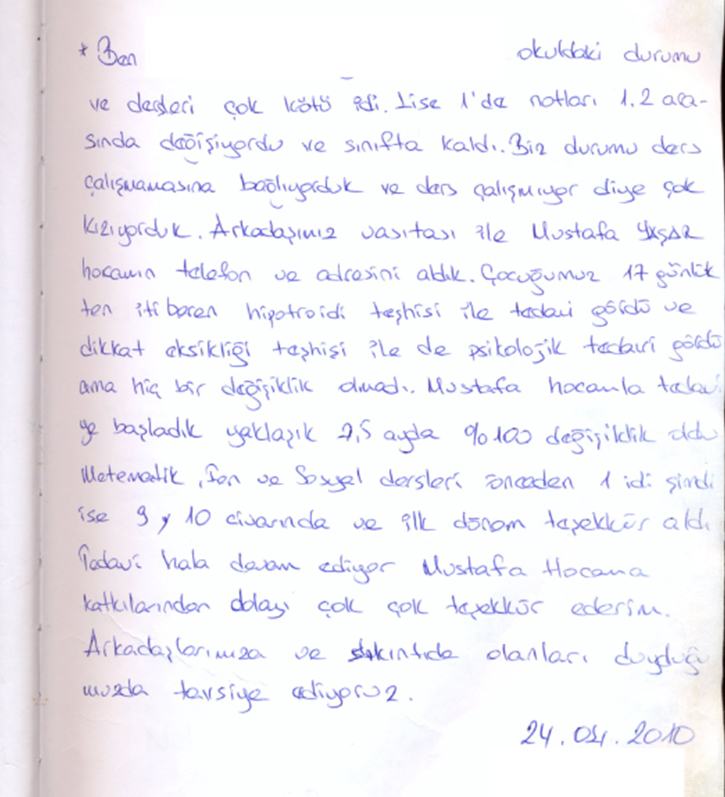 * Ben okuldaki durumu
ve dersleri çok kötü idi. Lise 1'de notları 1.2 ara-
sında değişiyordu ve sınıfta kaldı. Biz durumu ders
çalışmamasına bağlıyorduk ve ders çalışmıyor diye çok
kızıyorduk. Arkadaşımız vasıtası ile Mustafa YAŞAR
hocamın telefon ve adresini aldık. Çocuğumuz 17 günlük
ten itibaren hipotroidi teşhisi ile tedavi gördü ve
dikkat eksikliği teşhisi ile de psikolojik tedavi gördü
ama hiç bir değişiklik olmadı. Mustafa hocamla tedavi
ye başladık yaklaşık 2,5 ayda %100 değişiklik oldu
Metematik, fen ve Sosyal dersleri önceden 1 idi şimdi
ise 9 y 10 civarında ve ilk dönem teşekkür aldı
Tedavi hala devam ediyor Mustafa Hocama
katkılarından dolayı çok çok teşekkür ederim.
Arkadaşlarımıza ve sıkıntıda olanları duyduğu
muzda tavsiye ediyoruz.
24.04.2010